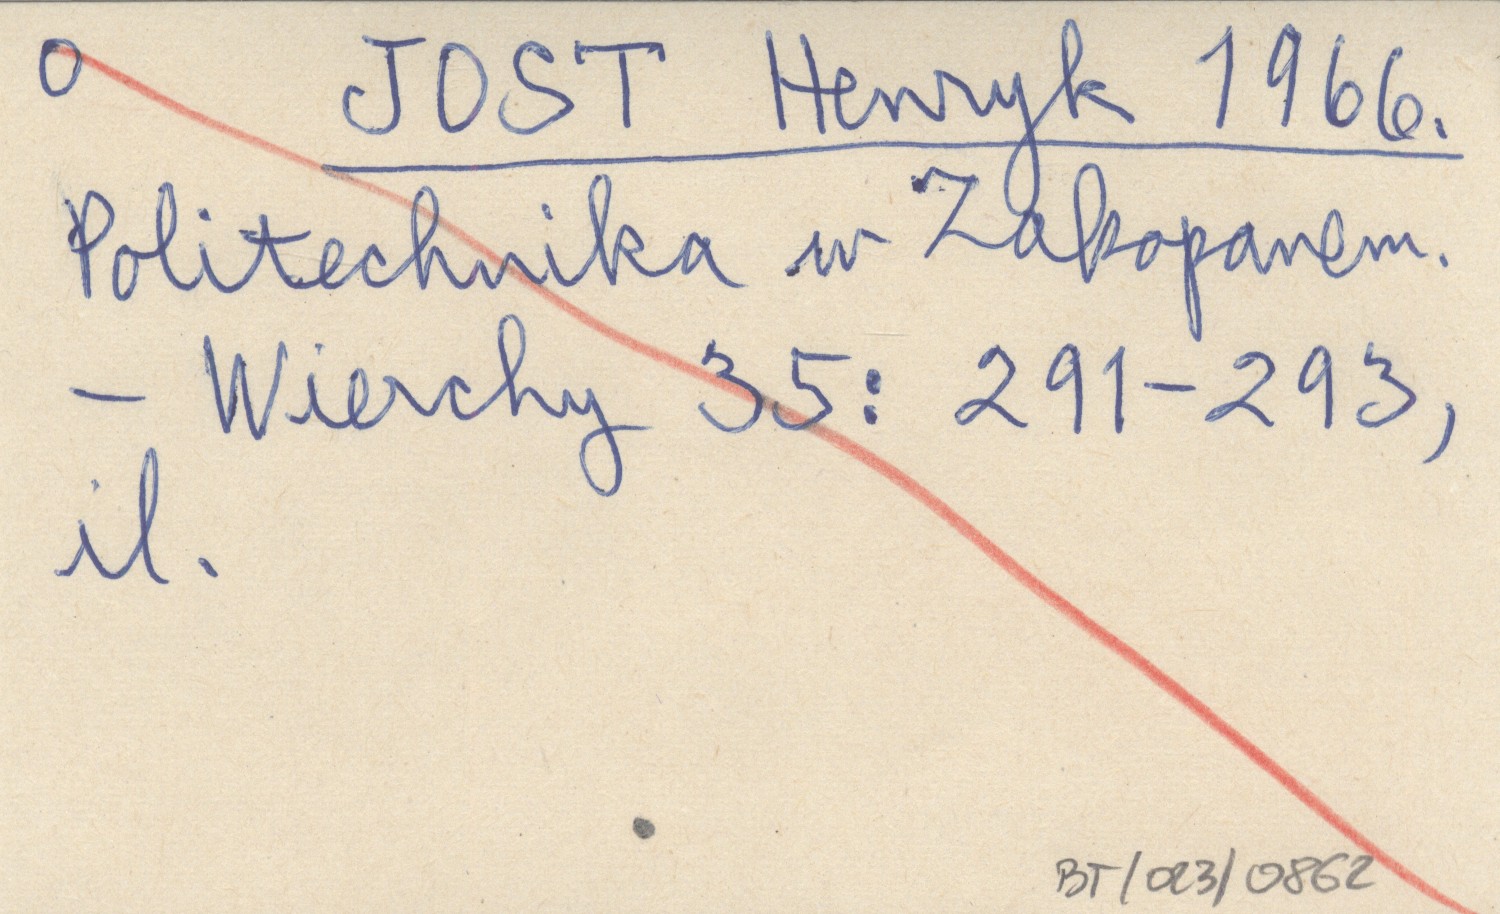 O JOST Henryk 1966.
Politechnika w Zakopanem.
– Wierchy 35: 291–293,
il.
BT/023/0862